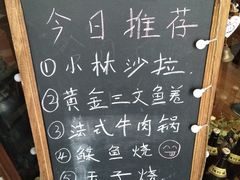 今日推荐
①小林沙拉
②黄金三文鱼卷
③法式牛肉锅
④鲽鱼烧
⑤玉子烧